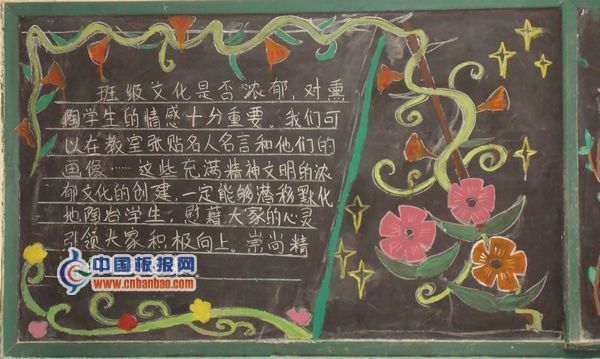 班级文化是否浓郁，对熏
陶学生的情感十分重要。我们可
以在教室张贴名人名言和他们的
画像……这些充满精神文明的浓
郁文化的创建，一定能够潜移默化
地陶冶学生，慰藉大家的心灵
引领大家积极向上。崇尚精
中国板报网
www.cnbanbao.com